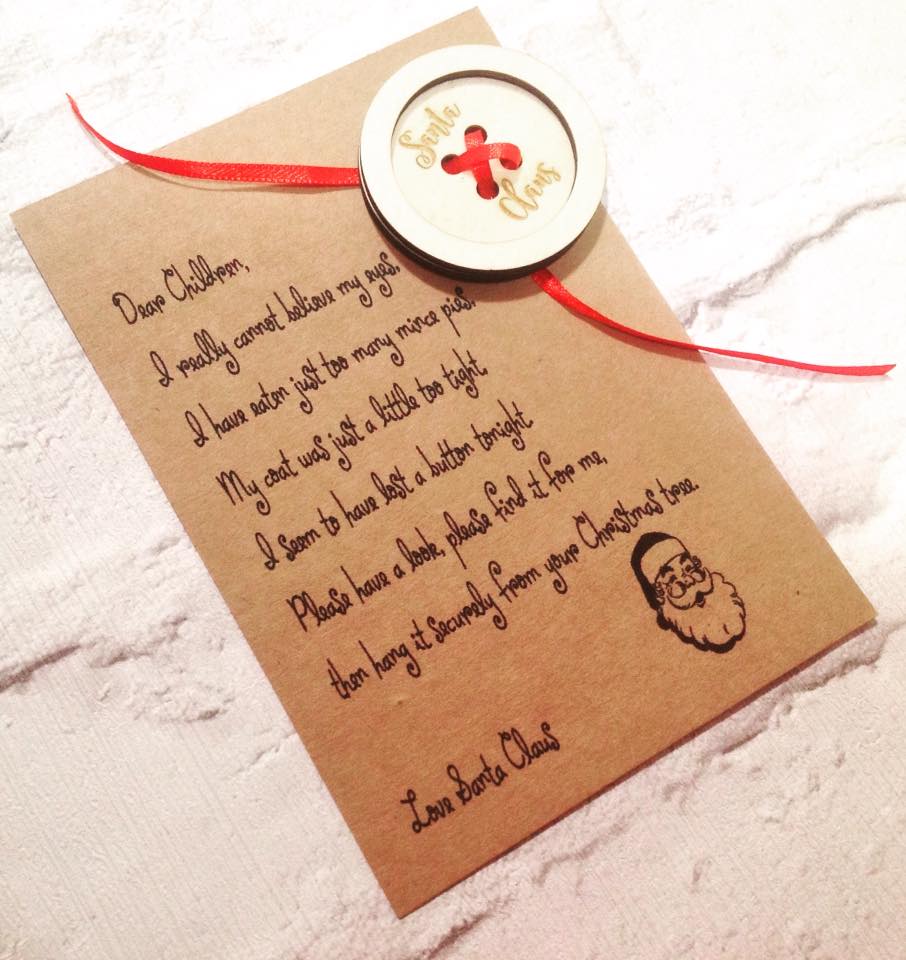 Santa
Claus
Dear Children,
I really cannot believe my eyes,
I have eaten just too many mince pies.
My coat was just a little too tight,
I seem to have lost a button tonight.
Please have a look, please find it for me,
then hang it securely from your Christmas tree.
Love Santa Claus